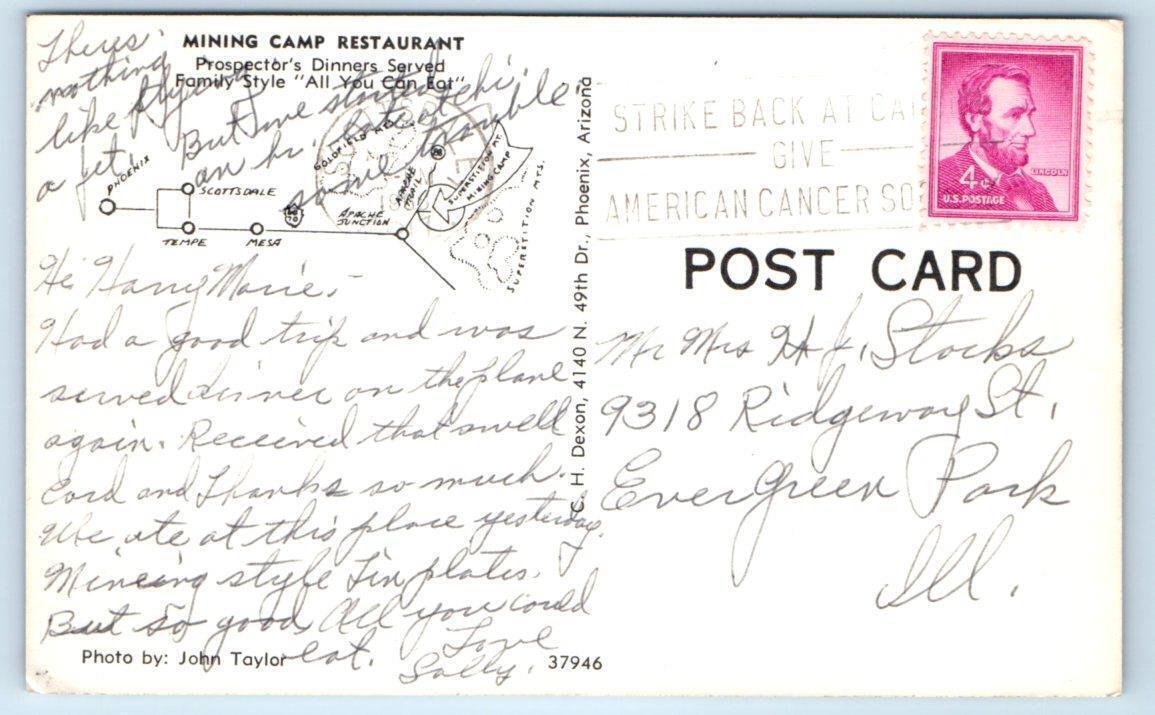 MINING CAMP RESTAURANT
Prospector's Dinners Served
Family Style "All You Can Eat"
Theres
nothing
like flying
a jet.
But we started
an hr. late at chi.
some trouble
PHOENIX
SCOTTSDALE
TEMPE
MESA
GOLDFIELD
APACHE
JUNCTION
APACHE
TRAIL
SUPERSTITION MT.
MINING CAMP
SUPERSTITION MTS.
Hi Harry Marie,-
Had a good trip and was
served dinner on the plane
again. Received that swell
Card and Thanks so much.
We ate at this place yesterday.
Mineing style Tin plates.
But so good, All you could
eat.
Love
Sally.
Photo by: John Taylor
37946
C. H. Dexon, 4140 N. 49th Dr., Phoenix, Arizona
STRIKE BACK AT CAN
GIVE
AMERICAN CANCER SO
LINCOLN
4¢
U.S. POSTAGE
POST CARD
Mr Mrs H J, Stocks
9318 Ridgeway St,
EverGreen Park
Ill.